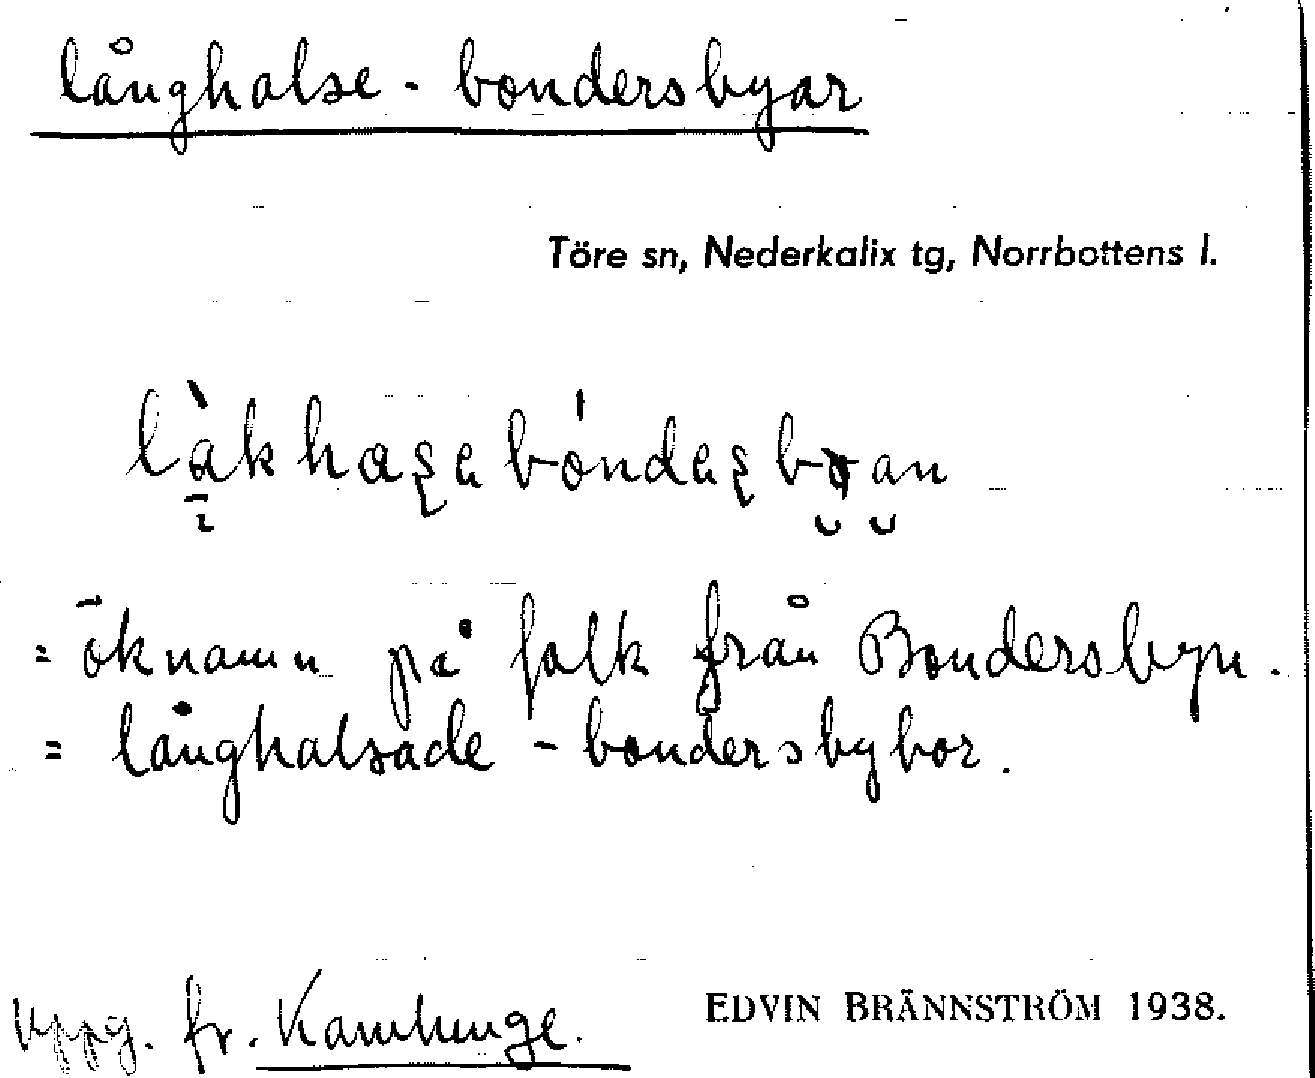 långhalse - bondersbyar
Töre sn, Nederkalix tg, Norrbottens l.
= öknamn på folk från Bondersbyn.
= långhalsade - bondersbybor.
Uppg. fr. Kamlunge.
EDVIN BRÄNNSTRÖM 1938.